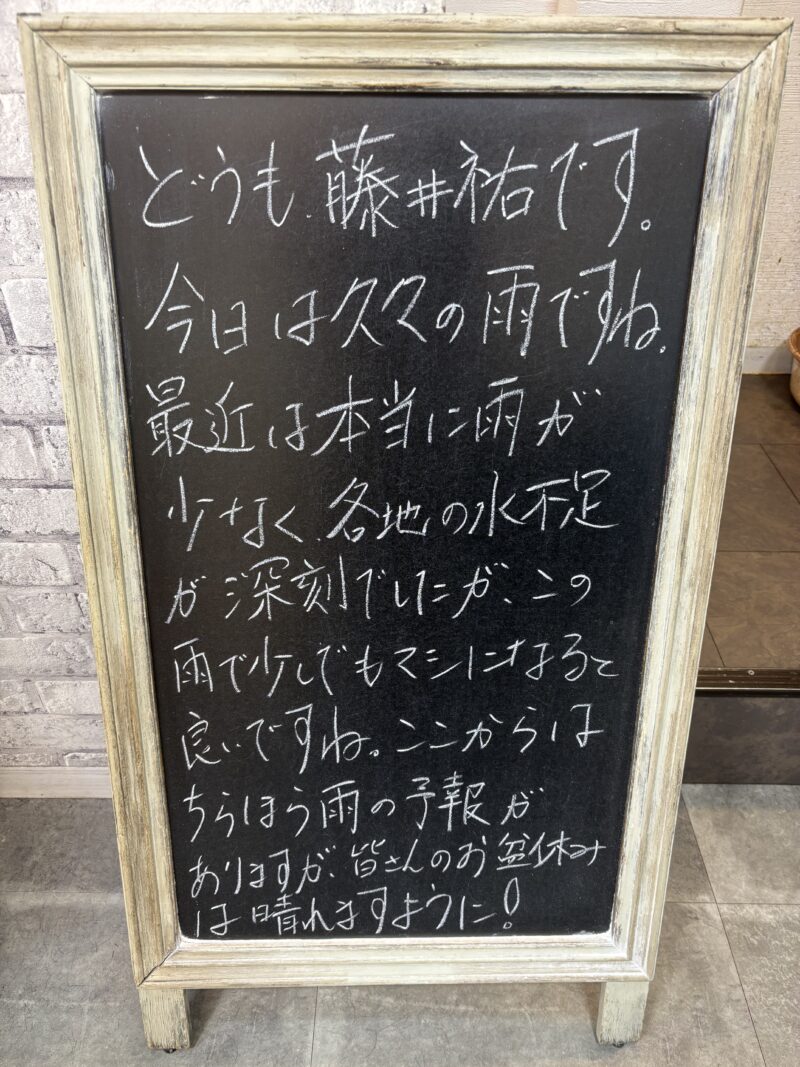 どうも、藤井祐です。
今日は久々の雨ですね。
最近は本当に雨が
少なく、各地の水不足
が深刻でしたが、この
雨で少しでもマシになると
良いですね。ここからは
ちらほら雨の予報が
ありますが、皆さんのお盆休み
は晴れますように!